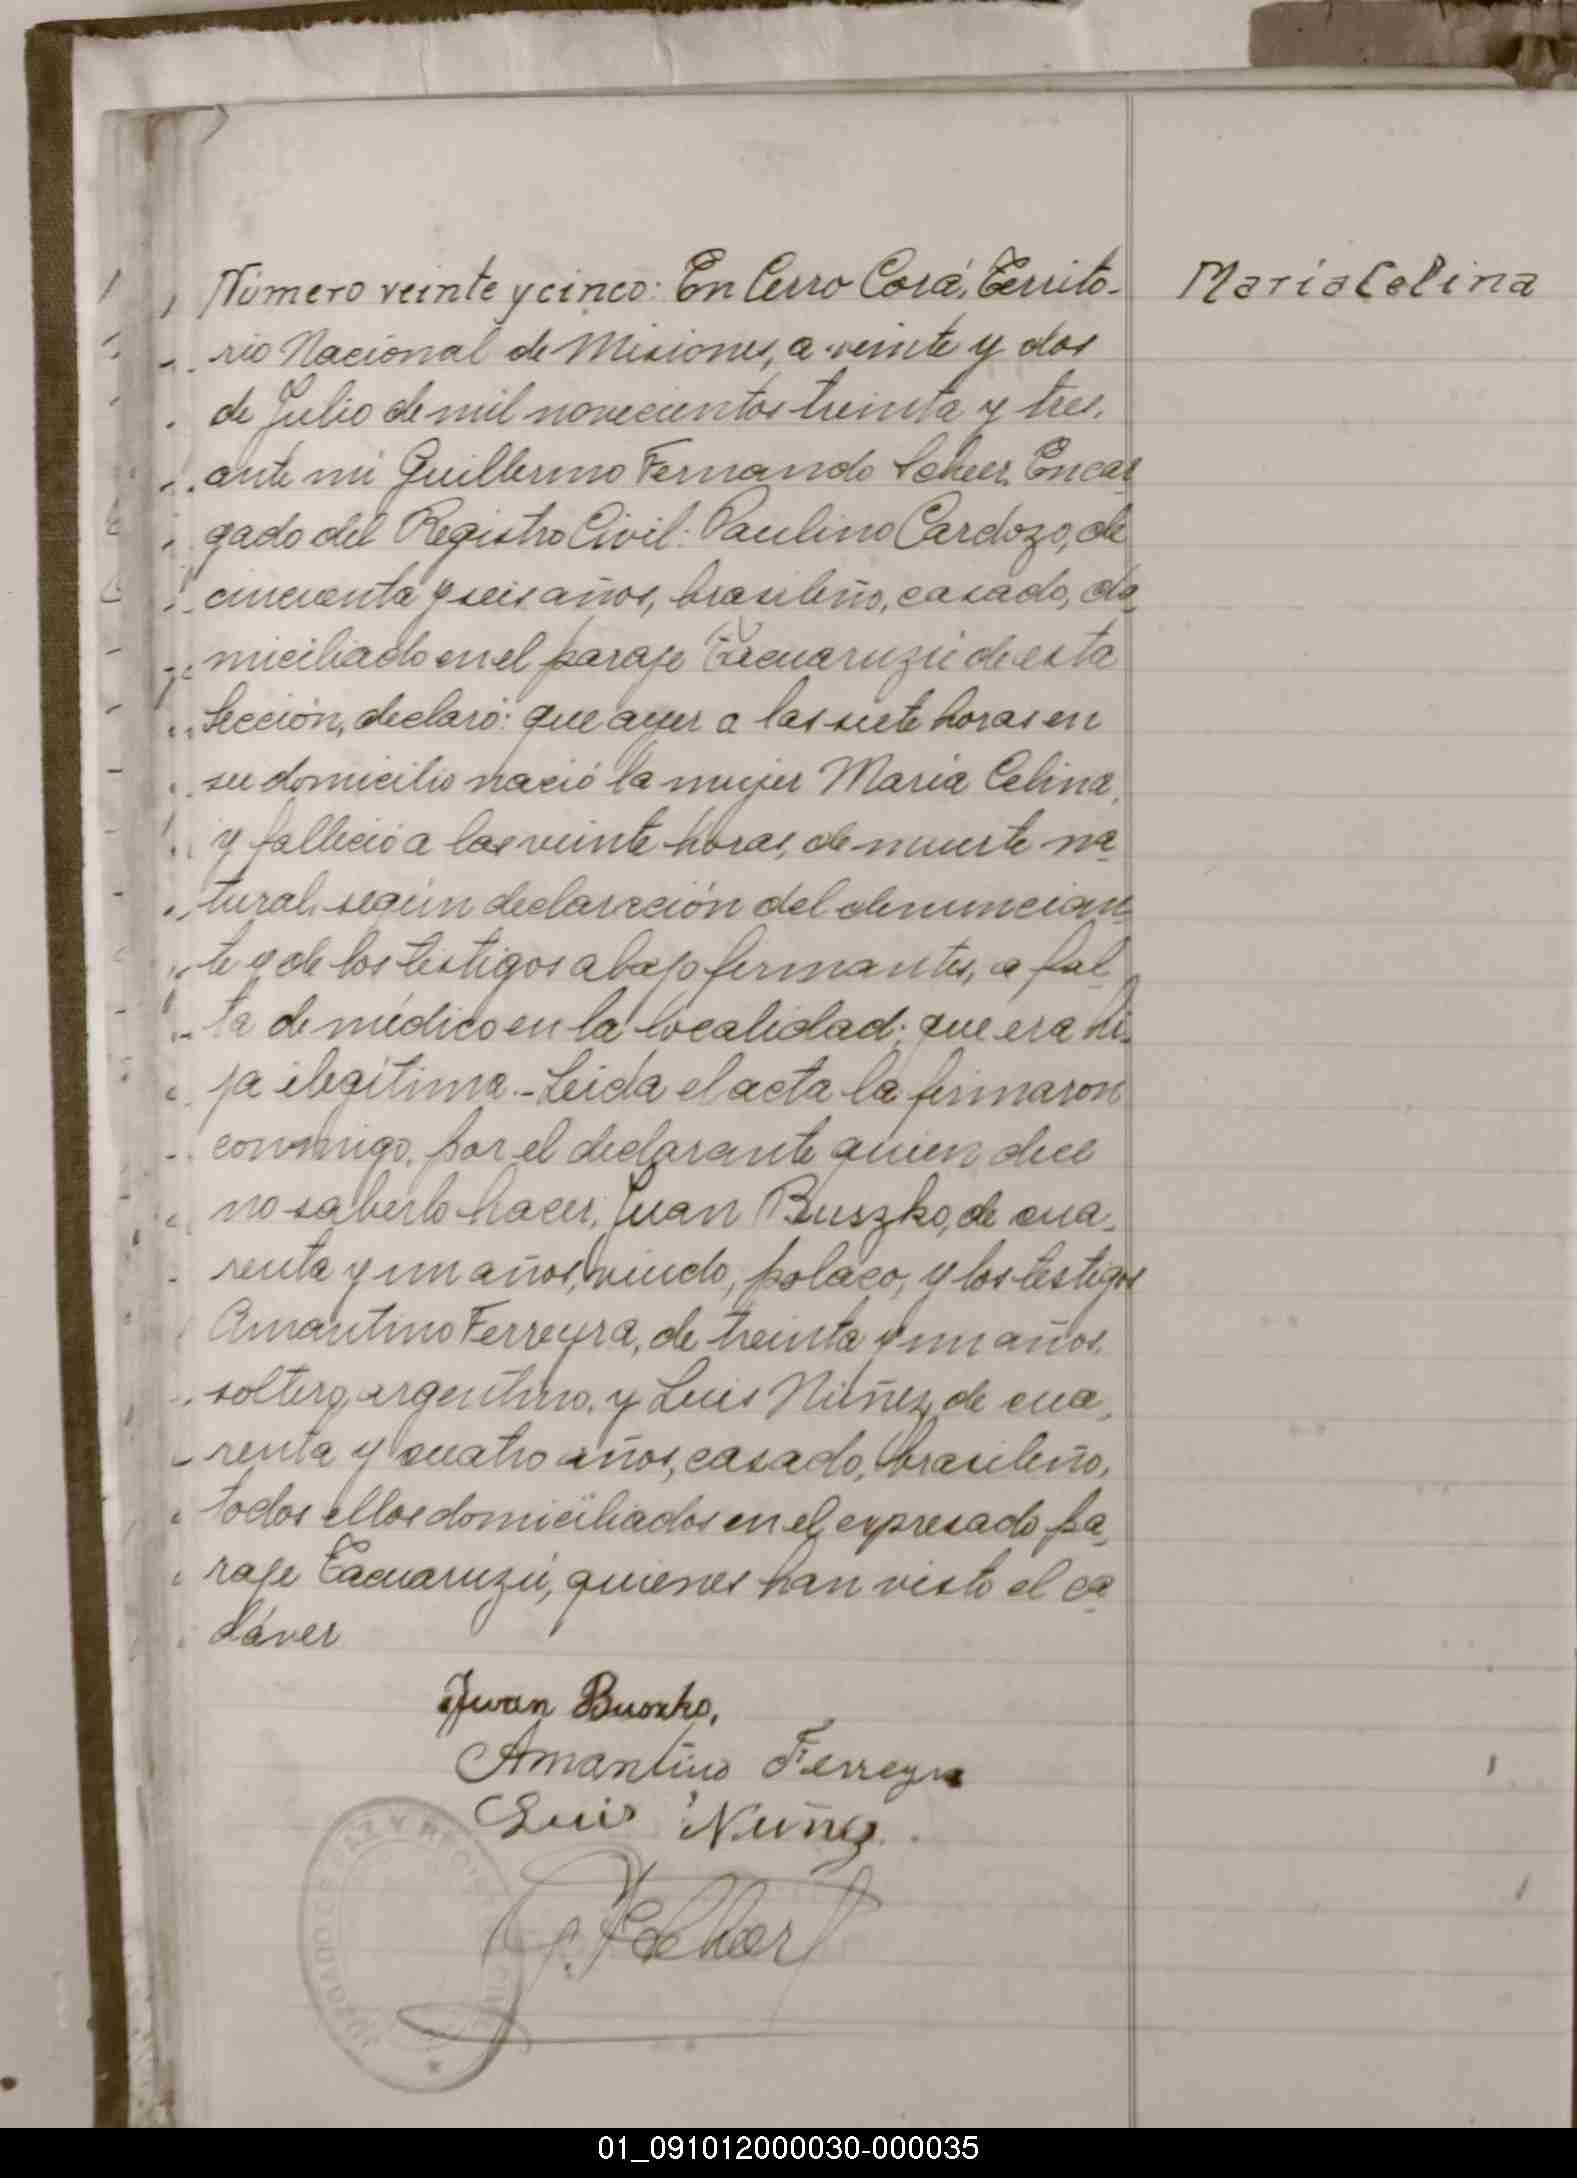 Número veinte y cinco: En Cerro Corá, Territo-
María Celina
rio Nacional de Misiones, a veinte y dos
de Julio de mil novecientos treinta y tres,
ante mi Guillermo Fernando Scheer, Encar
gado del Registro Civil: Paulino Cardozo, de
cincuenta y seis años, brasileño, casado, do
miciliado en el paraje Tacuaruzú de esta
Sección, declaró: que ayer a las siete horas en
su domicilio nació la mujer María Celina,
y falleció a las veinte horas, de muerte na
tural, según declaración del denuncian
te y de los testigos abajo firmantes, a fal
ta de médico en la localidad; que era hi-
ja ilegítima.- Leida el acta la firmaron
conmigo, por el declarante quien dice
no saberlo hacer, Juan Buszko, de cua-
renta y un años, viudo, polaco, y los testigos
Amantino Ferreyra, de treinta y un años,
soltero, argentino, y Luis Núñez, de cua-
renta y cuatro años, casado, brasileño,
todos ellos domiciliados en el expresado pa-
raje Tacuaruzú, quienes han visto el ca
dáver
Juan Buszko,
Amantino Ferreyra
Luis Nuñez.
G. F. Scheer
01_091012000030-000035